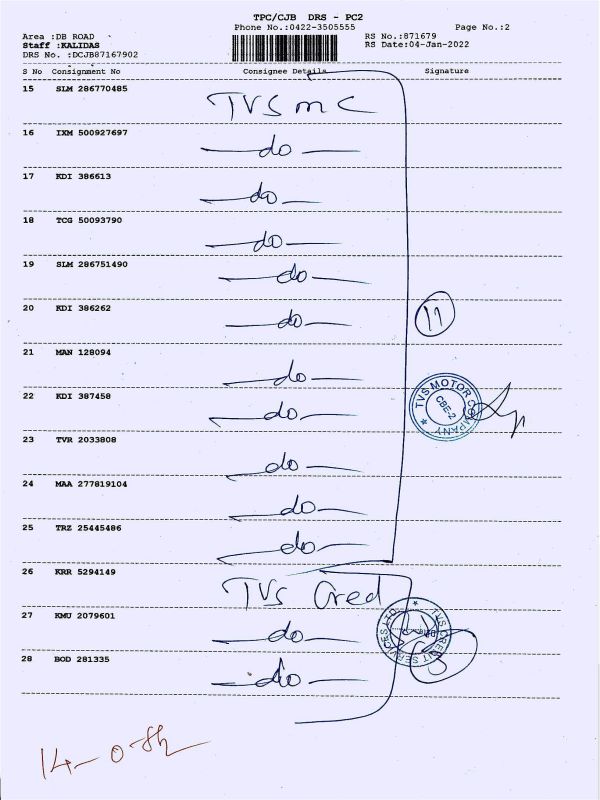 TPC/CJB DRS - PC2
Phone No.:0422-3505555 Page No.:2
Area :DB ROAD RS No.:871679
Staff :KALIDAS RS Date:04-Jan-2022
DRS No. :DCJB87167902
S No Consignment No Consignee Details Signature
15 SLM 286770485 TVS m C
16 IXM 500927697 —do—
17 KDI 386613 —do—
18 TCG 50093790 —do—
19 SLM 286751490 —do—
20 KDI 386262 —do—
11
21 MAN 128094 —do—
22 KDI 387458 —do—
TVS MOTOR COMPANY
CBE-2
23 TVR 2033808 —do—
24 MAA 277819104 —do—
25 TRZ 25445486 —do—
26 KRR 5294149 TVS Cred
27 KMU 2079601 —do—
TVS CREDIT SERVICES LTD
28 BOD 281335 —do—